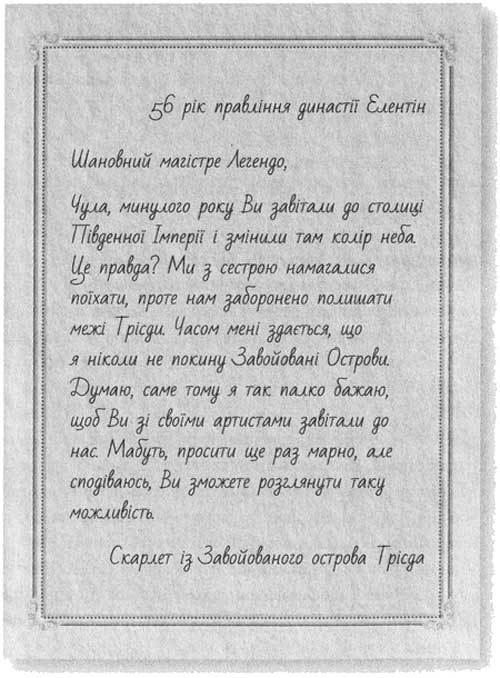 56 рік правління династії Елентін
Шановний магістре Легендо,
Чула, минулого року Ви завітали до столиці
Південної Імперії і змінили там колір неба.
Це правда? Ми з сестрою намагалися
поїхати, проте нам заборонено полишати
межі Трісди. Часом мені здається, що
я ніколи не покину Завойовані Острови.
Думаю, саме тому я так палко бажаю,
щоб Ви зі своїми артистами завітали до
нас. Мабуть, просити ще раз марно, але
сподіваюсь, Ви зможете розглянути таку
можливість.
Скарлет із Завойованого острова Трісда